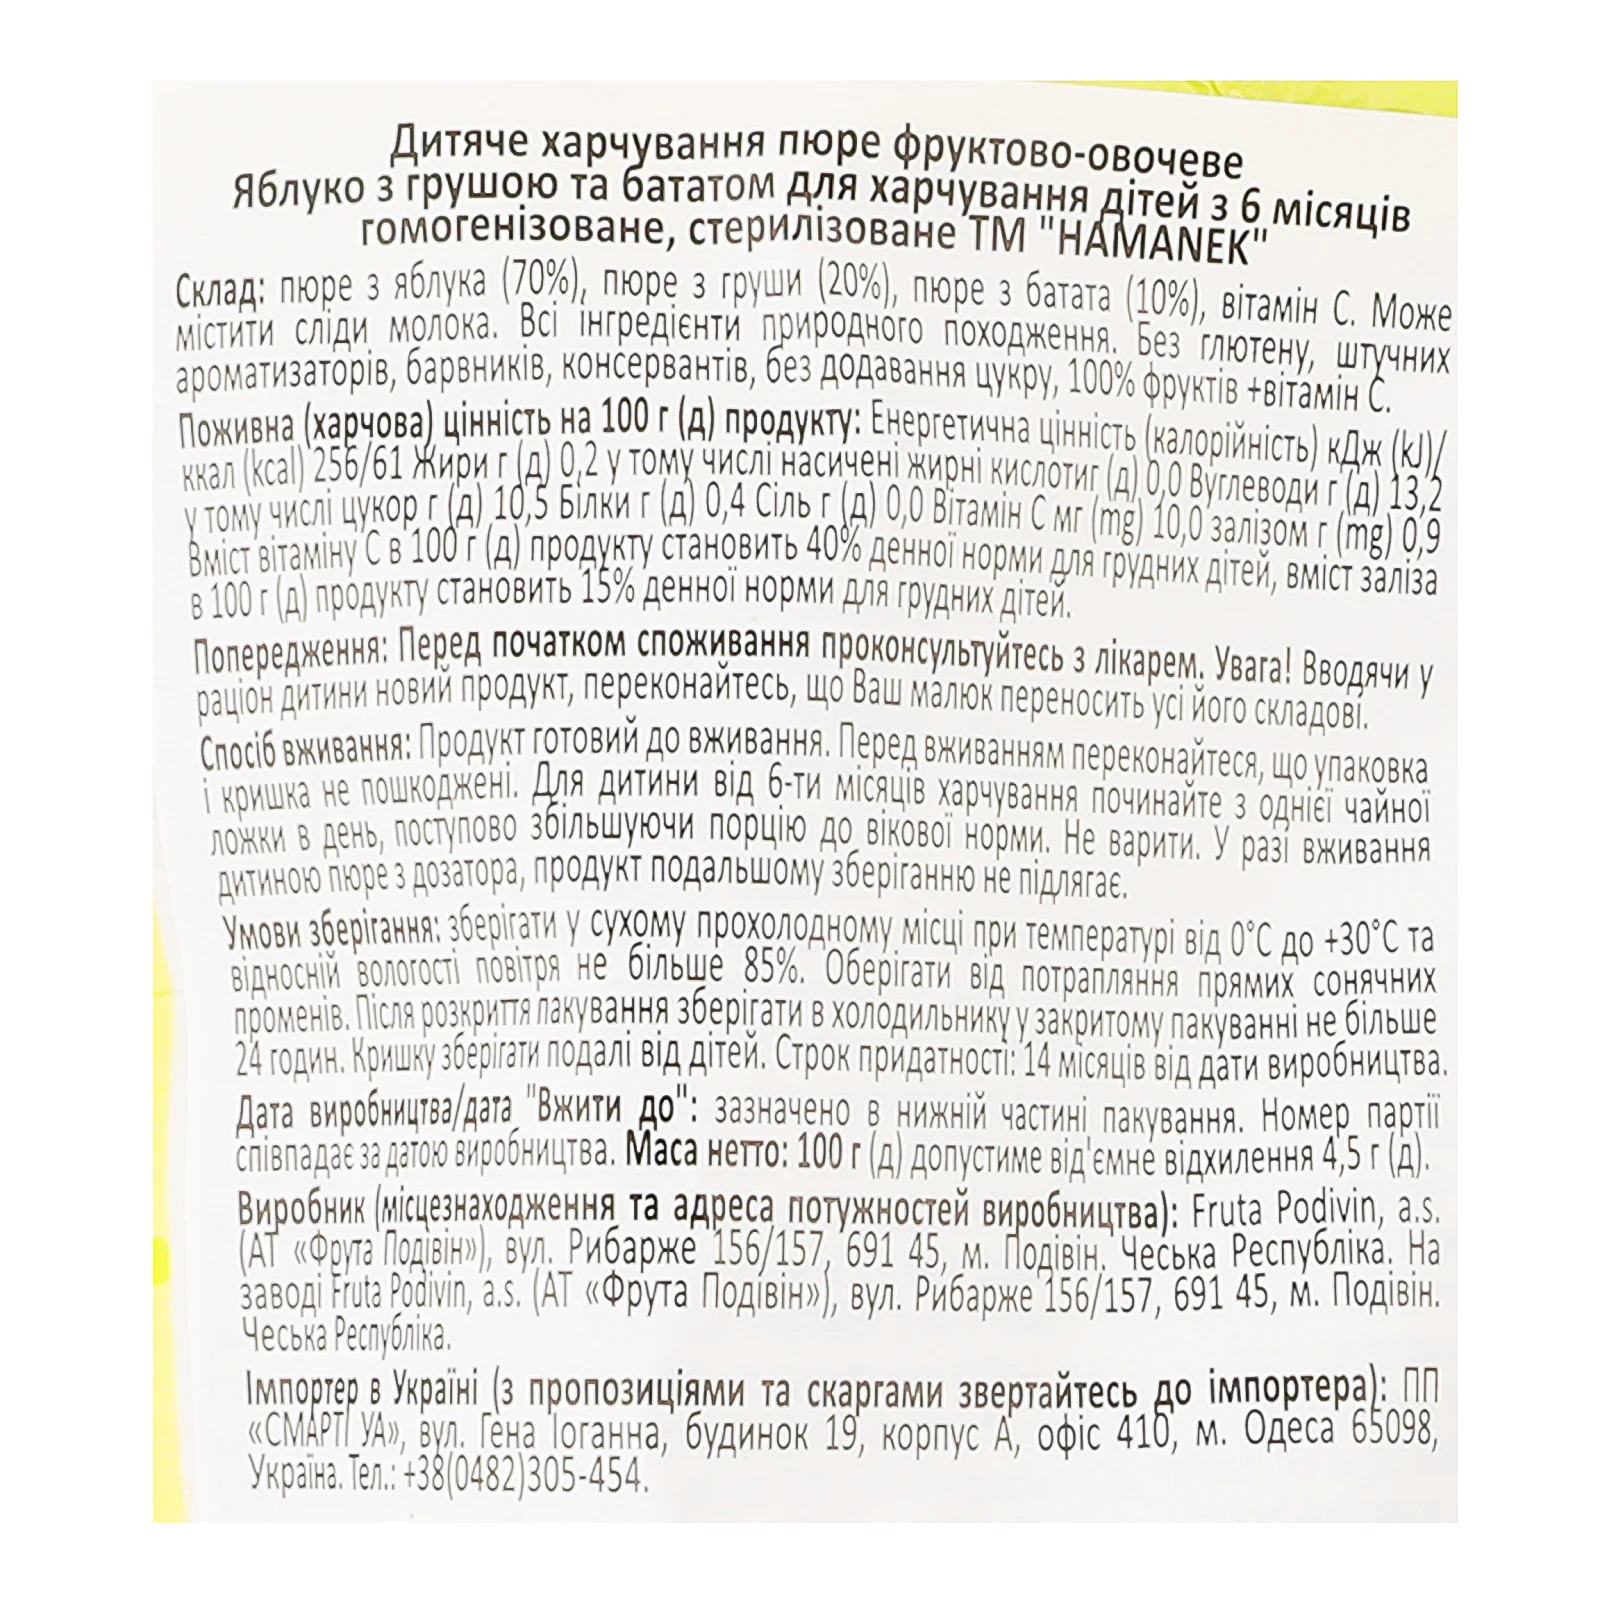 Дитяче харчування пюре фруктово-овочеве
Яблуко з грушою та бататом для харчування дітей з 6 місяців
гомогенізоване, стерилізоване ТМ "HAMANEK"
Склад: пюре з яблука (70%), пюре з груши (20%), пюре з батата (10%), вітамін С. Може
містити сліди молока. Всі інгредієнти природного походження. Без глютену, штучних
ароматизаторів, барвників, консервантів, без додавання цукру, 100% фруктів +вітамін С.
Поживна (харчова) цінність на 100 г (д) продукту: Енергетична цінність (калорійність) кДж (kJ)/
ккал (kcal) 256/61 Жири г (д) 0,2 у тому числі насичені жирні кислотиг (д) 0,0 Вуглеводи г (д) 13,2
у тому числі цукор г (д) 10,5 Білки г (д) 0,4 Сіль г (д) 0,0 Вітамін С мг (mg) 10,0 залізом г (mg) 0,9
Вміст вітаміну С в 100 г (д) продукту становить 40% денної норми для грудних дітей, вміст заліза
в 100 г (д) продукту становить 15% денної норми для грудних дітей.
Попередження: Перед початком споживання проконсультуйтесь з лікарем. Увага! Вводячи у
раціон дитини новий продукт, переконайтесь, що Ваш малюк переносить усі його складові.
Спосіб вживання: Продукт готовий до вживання. Перед вживанням переконайтеся, що упаковка
і кришка не пошкоджені. Для дитини від 6-ти місяців харчування починайте з однієї чайної
ложки в день, поступово збільшуючи порцію до вікової норми. Не варити. У разі вживання
дитиною пюре з дозатора, продукт подальшому зберіганню не підлягає.
Умови зберігання: зберігати у сухому прохолодному місці при температурі від 0°С до +30°С та
відносній вологості повітря не більше 85%. Оберігати від потрапляння прямих сонячних
променів. Після розкриття пакування зберігати в холодильнику у закритому пакуванні не більше
24 годин. Кришку зберігати подалі від дітей. Строк придатності: 14 місяців від дати виробництва.
Дата виробництва/дата "Вжити до": зазначено в нижній частині пакування. Номер партії
співпадає за датою виробництва. Маса нетто: 100 г (д) допустиме від'ємне відхилення 4,5 г (д).
Виробник (місцезнаходження та адреса потужностей виробництва): Fruta Podivin, a.s.
(АТ «Фрута Подівін»), вул. Рибарже 156/157, 691 45, м. Подівін. Чеська Республіка. На
заводі Fruta Podivin, a.s. (АТ «Фрута Подівін»), вул. Рибарже 156/157, 691 45, м. Подівін.
Чеська Республіка.
Імпортер в Україні (з пропозиціями та скаргами звертайтесь до імпортера): ПП
«СМАРТІ УА», вул. Гена Іоганна, будинок 19, корпус А, офіс 410, м. Одеса 65098,
Україна. Тел.: +38(0482)305-454.